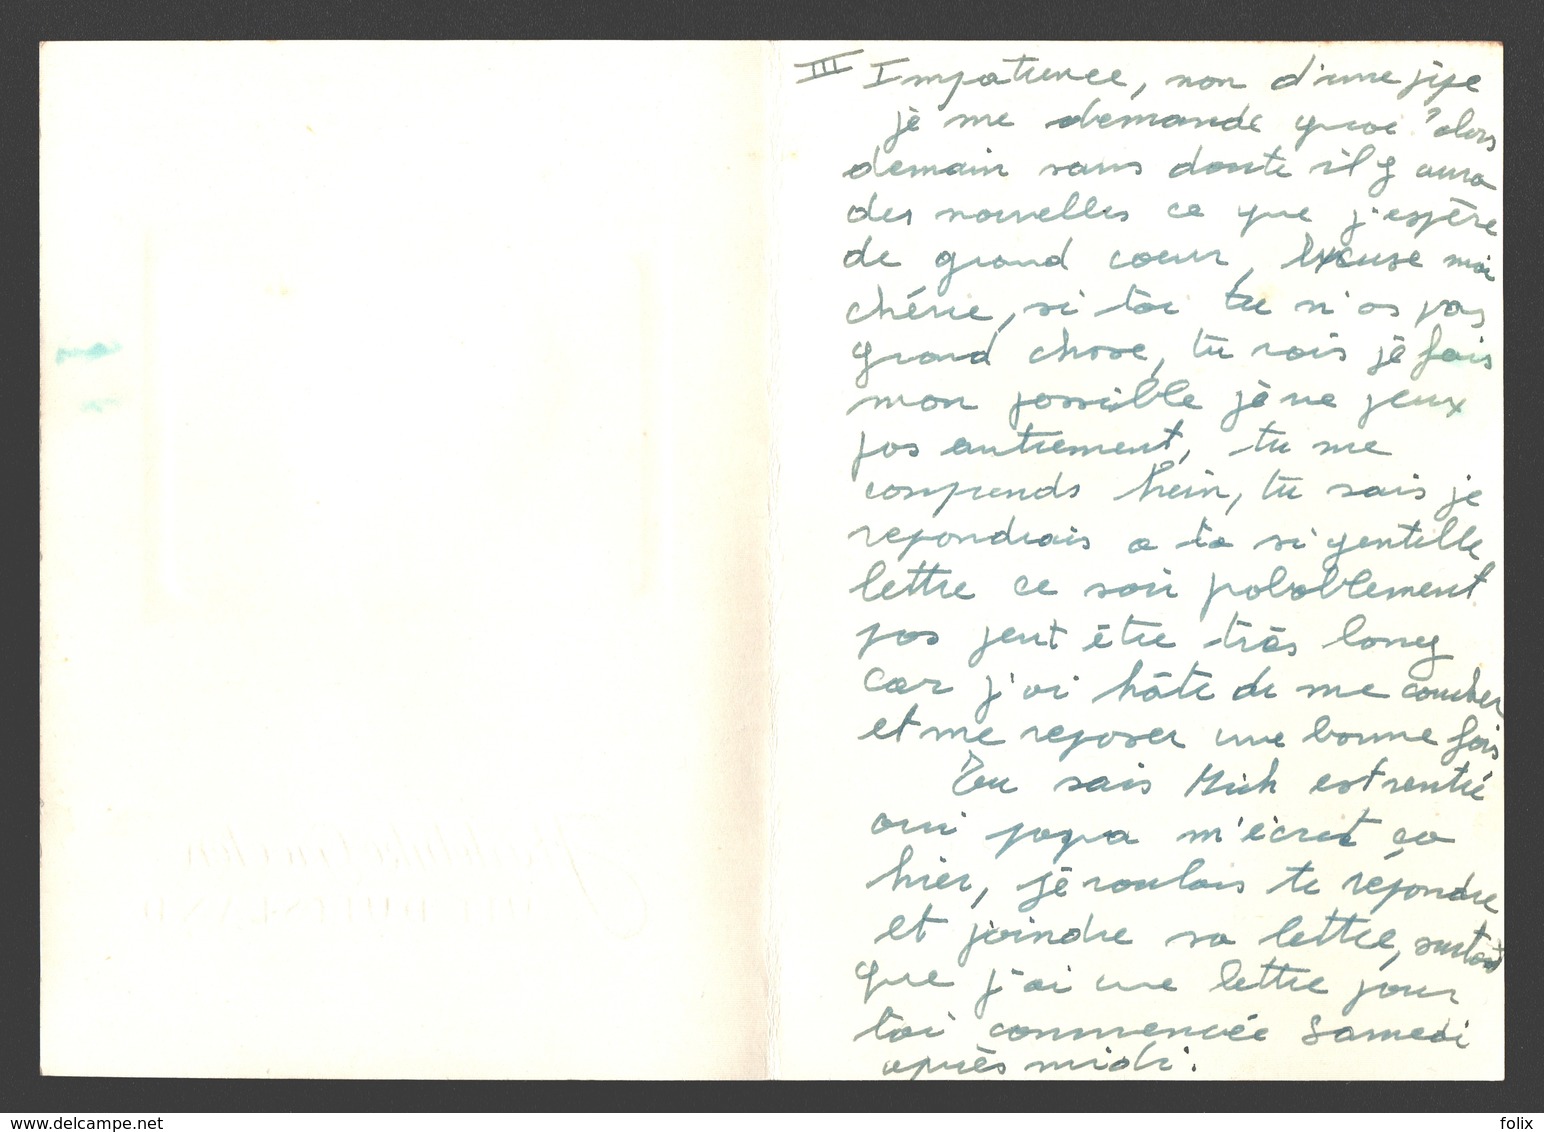 III Impatience, non d'une pipe
je me demande quoi? alors
demain sans doute il y aura
des nouvelles ce que j'espère
de grand cœur, Excuse moi
chérie, si toi tu n'as pas
grand chose, tu vois je fais
mon possible je ne peux
pas autrement, tu me
comprends hein, tu sais je
repondrais a ta si gentille
lettre ce soir probablement
pas peut être très long
car j'ai hâte de me coucher
et me reposer une bonne fois
Tu sais Mich est rentré
oui papa m'écrit ça
hier, je voulais te répondre
et joindre sa lettre, surtout
que j'ai une lettre pour
toi commencée Samedi
après midi.
www.delcampe.net
folix